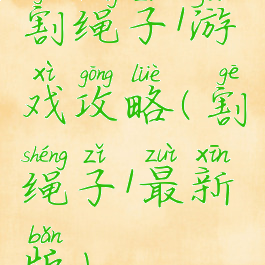 割绳子/游
xì gōng lüè gē
戏攻略(割
shéng zǐ zuì xīn
绳子/最新
bǎn
版)